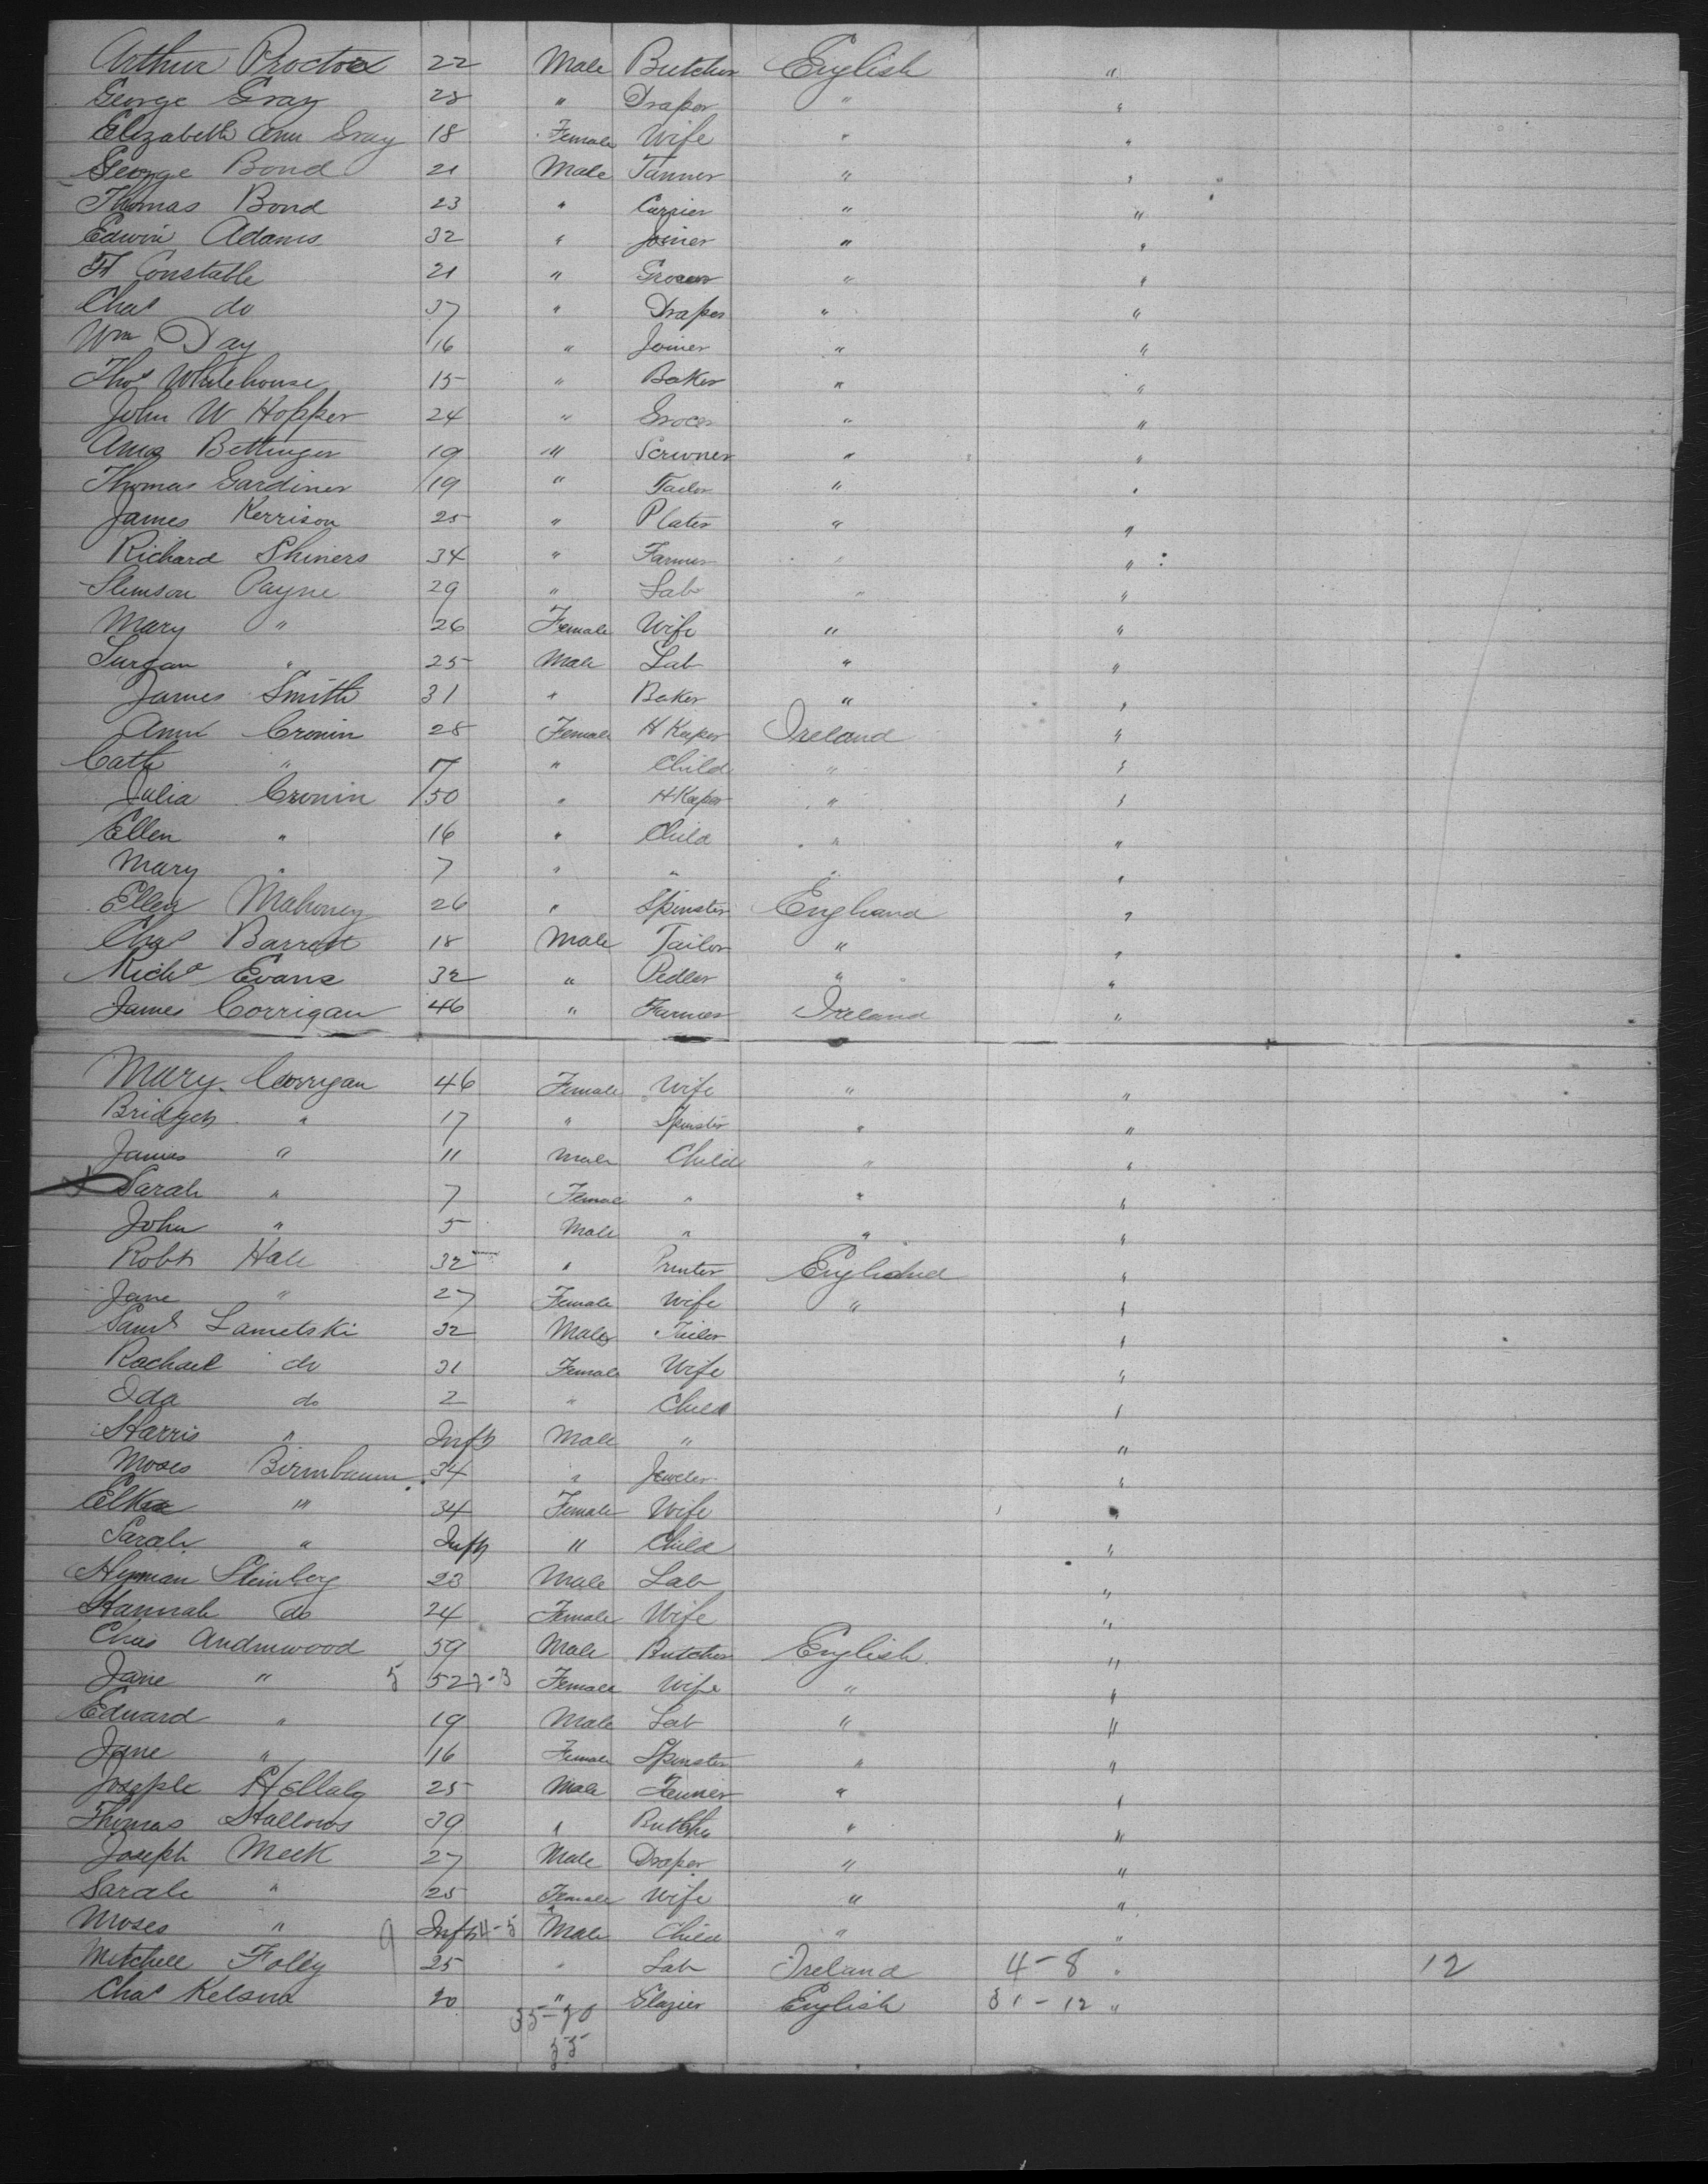 Arthur Proctor 22 Male Butcher English "
George Gray 28 " Draper " "
Elizabeth Ann Gray 18 Female Wife " "
George Bond 21 Male Tanner " "
Thomas Bond 23 " Currier " "
Edwin Adams 32 " Joiner " "
Constable 21 " Grocer " "
Chas do 37 " Draper " "
Wm Day 16 " Joiner " "
Thos Whitehouse 15 " Baker " "
John W Hopper 24 " Grocer " "
Amos Bettinger 19 " Scrivner " "
Thomas Gardiner 19 " Tailor " "
James Kerrison 25 " Plater " "
Richard Shiners 34 " Farmer " "
Payne 29 " Lab " "
Mary " 26 Female Wife " "
" 25 Male Lab " "
James Smith 31 " Baker " "
Ann Cronin 28 Female H Keeper Ireland "
Cath " 7 " Child " "
Julia Cronin 50 " H Keeper " "
Ellen " 16 " Child " "
Mary " 7 " " " "
Ellen Mahoney 26 " Spinster England "
Chas Barrett 18 Male Tailor " "
Richd Evans 32 " Pedler " "
James Corrigan 46 " Farmer Ireland "
Mary Corrigan 46 Female Wife " "
Bridget " 17 " Spinster " "
James " 11 Male Child " "
Sarah " 7 Female " " "
John " 5 Male " " "
Robt Hale 32 " Printer England "
Jane " 27 Female Wife " "
Saml Lametski 32 Male Tailor "
Rachael do 31 Female Wife "
Ida do 2 " Child "
Harris " Inft Male " "
Moses Birnbaum 34 " Jeweler "
Elka " 34 Female Wife "
Sarah " Inft " Child "
Hyman Steinberg 23 Male Lab "
Hannah do 24 Female Wife "
Chas 59 Male Butcher English "
Jane " 5 52 Female Wife " "
Edward " 19 Male Lab " "
Jane " 16 Female Spinster " "
Joseph 25 Male " "
Thomas Hallows 39 " Butcher " "
Joseph Meek 27 Male Draper " "
Sarah " 25 Female Wife " "
Moses " 9 Inft 4-5 Male Child " "
Mitchell Foley 25 " Lab Ireland 4-8 " 12
Chas 20 " Glazier English 31-12 "
35-20
35